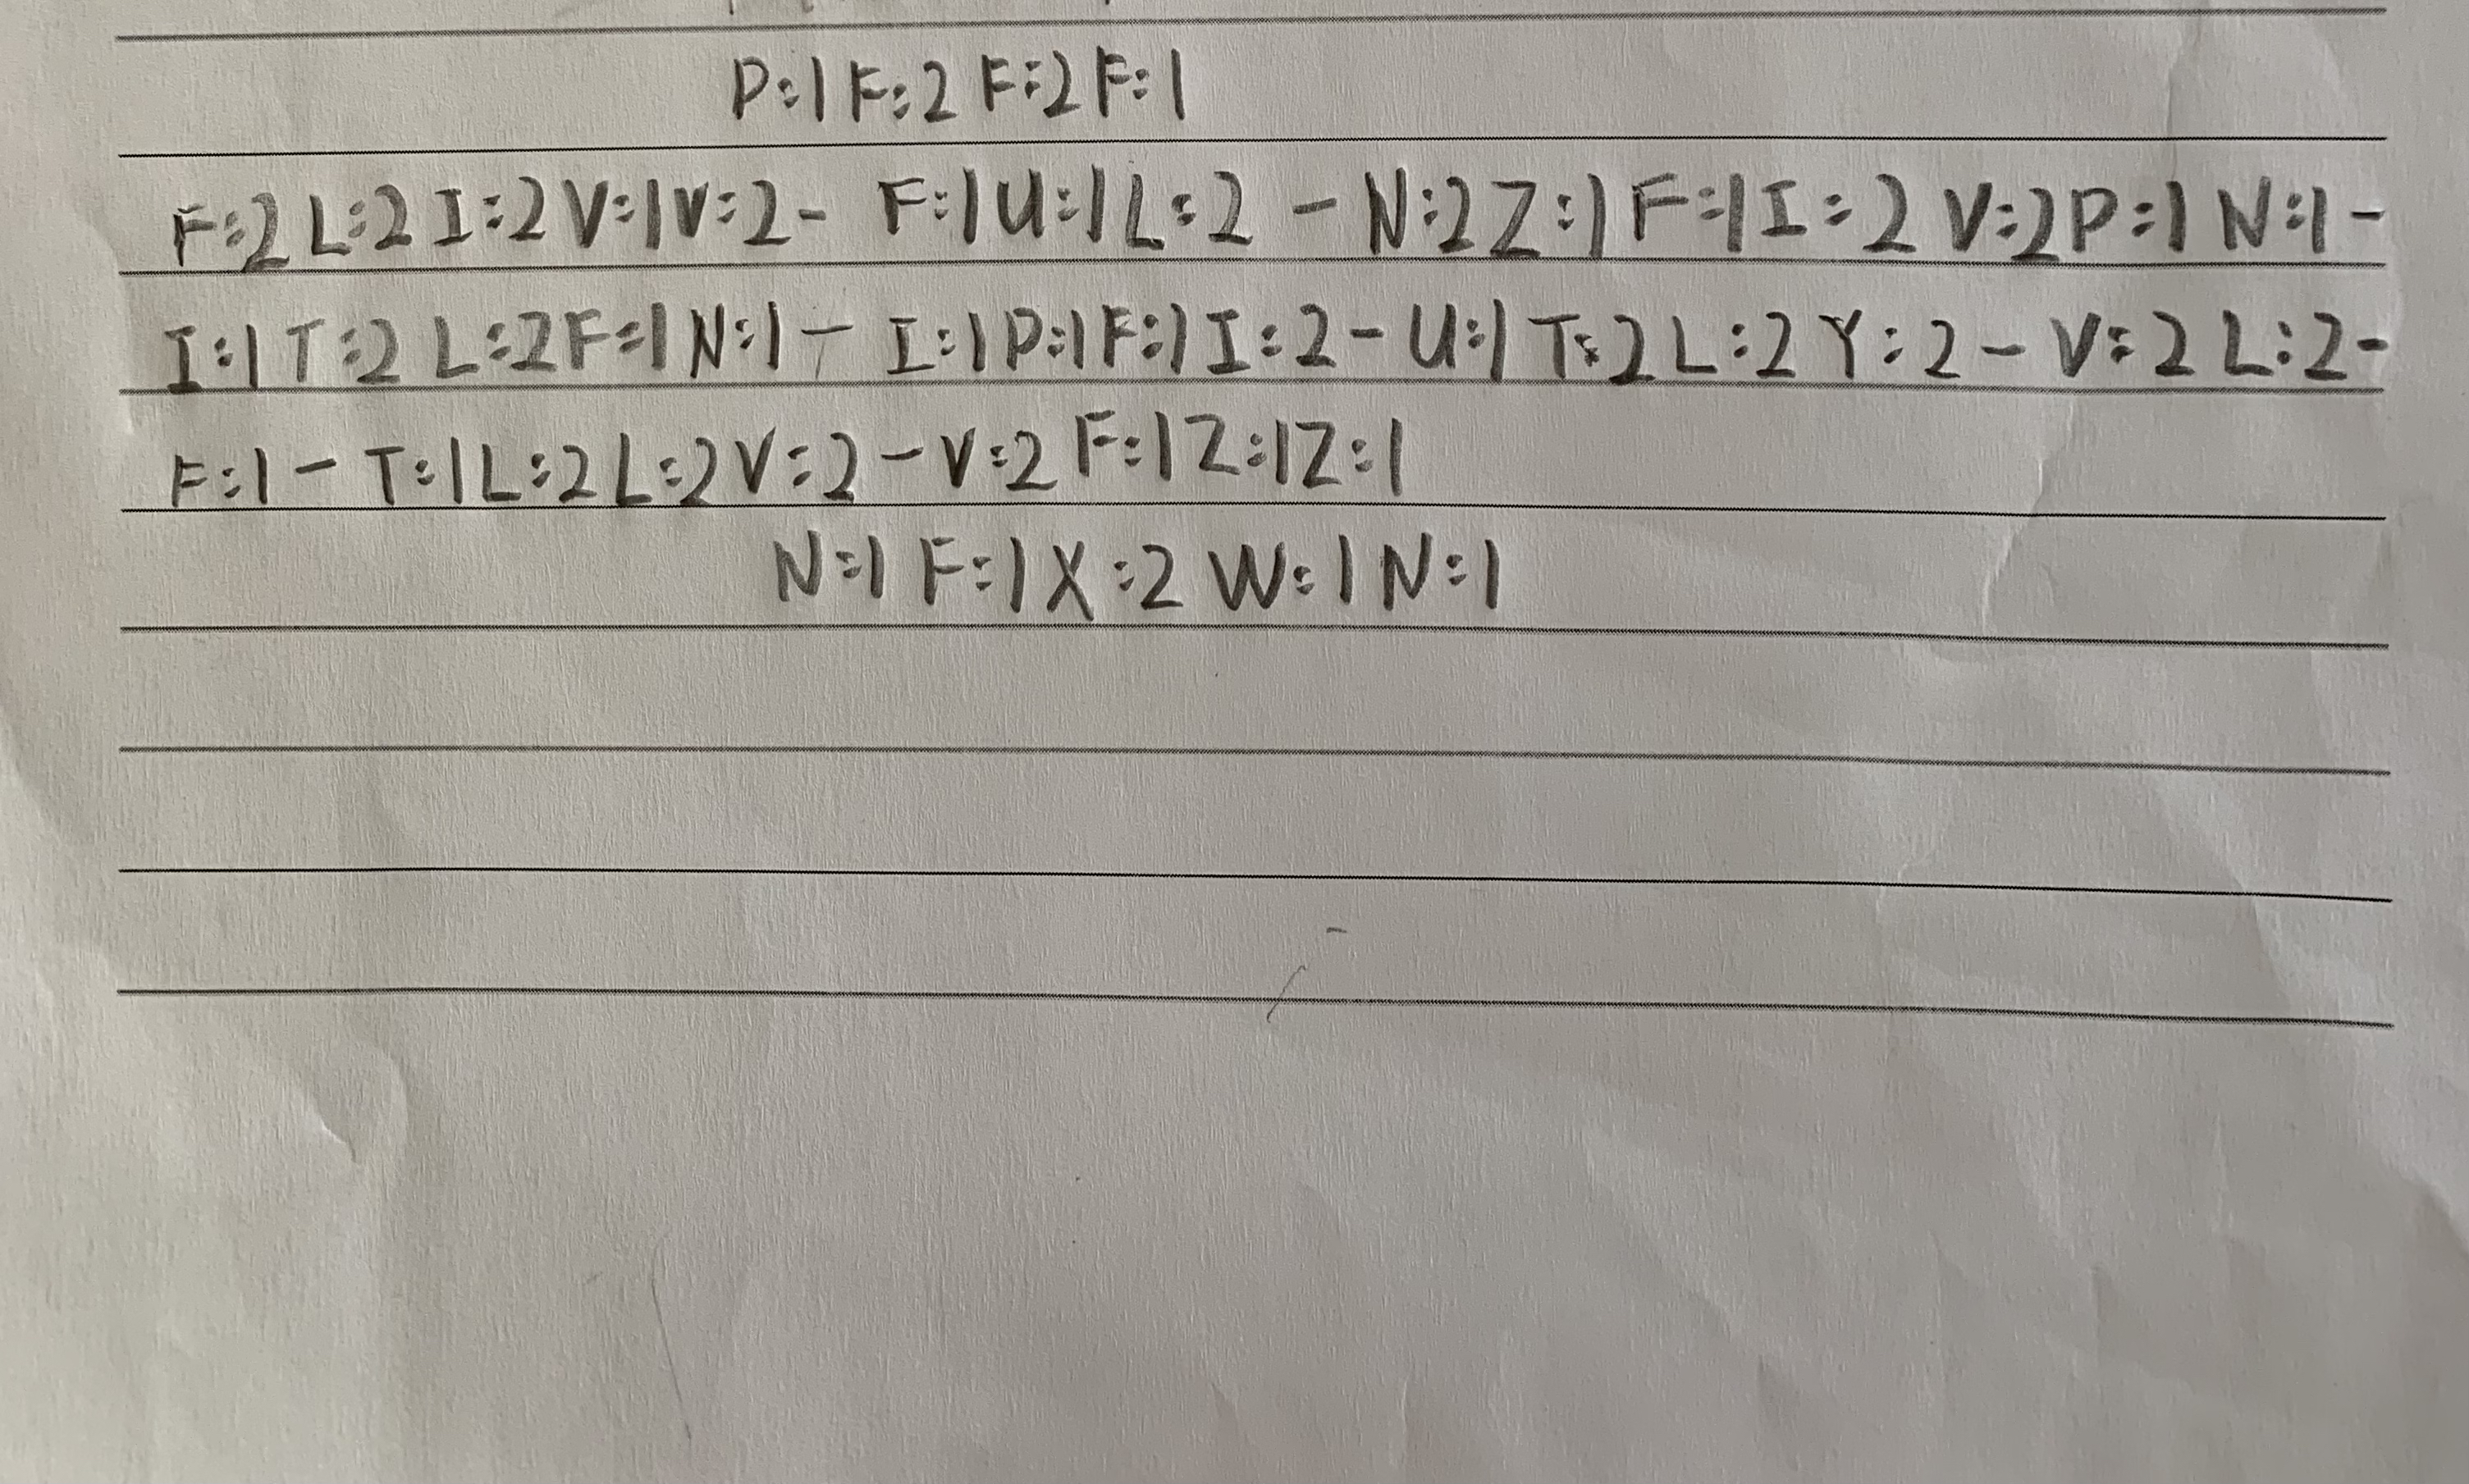 P:1 F:2 F:2 F:1
F:2 L:2 I:2 V:1 V:2 - F:1 U:1 L:2 - N:2 Z:1 F:1 I:2 V:2 P:1 N:1 -
I:1 T:2 L:2 F:1 N:1 - I:1 P:1 F:1 I:2 - U:1 T:2 L:2 Y:2 - V:2 L:2 -
F:1 - T:1 L:2 L:2 V:2 - V:2 F:1 Z:1 Z:1
N:1 F:1 X:2 W:1 N:1